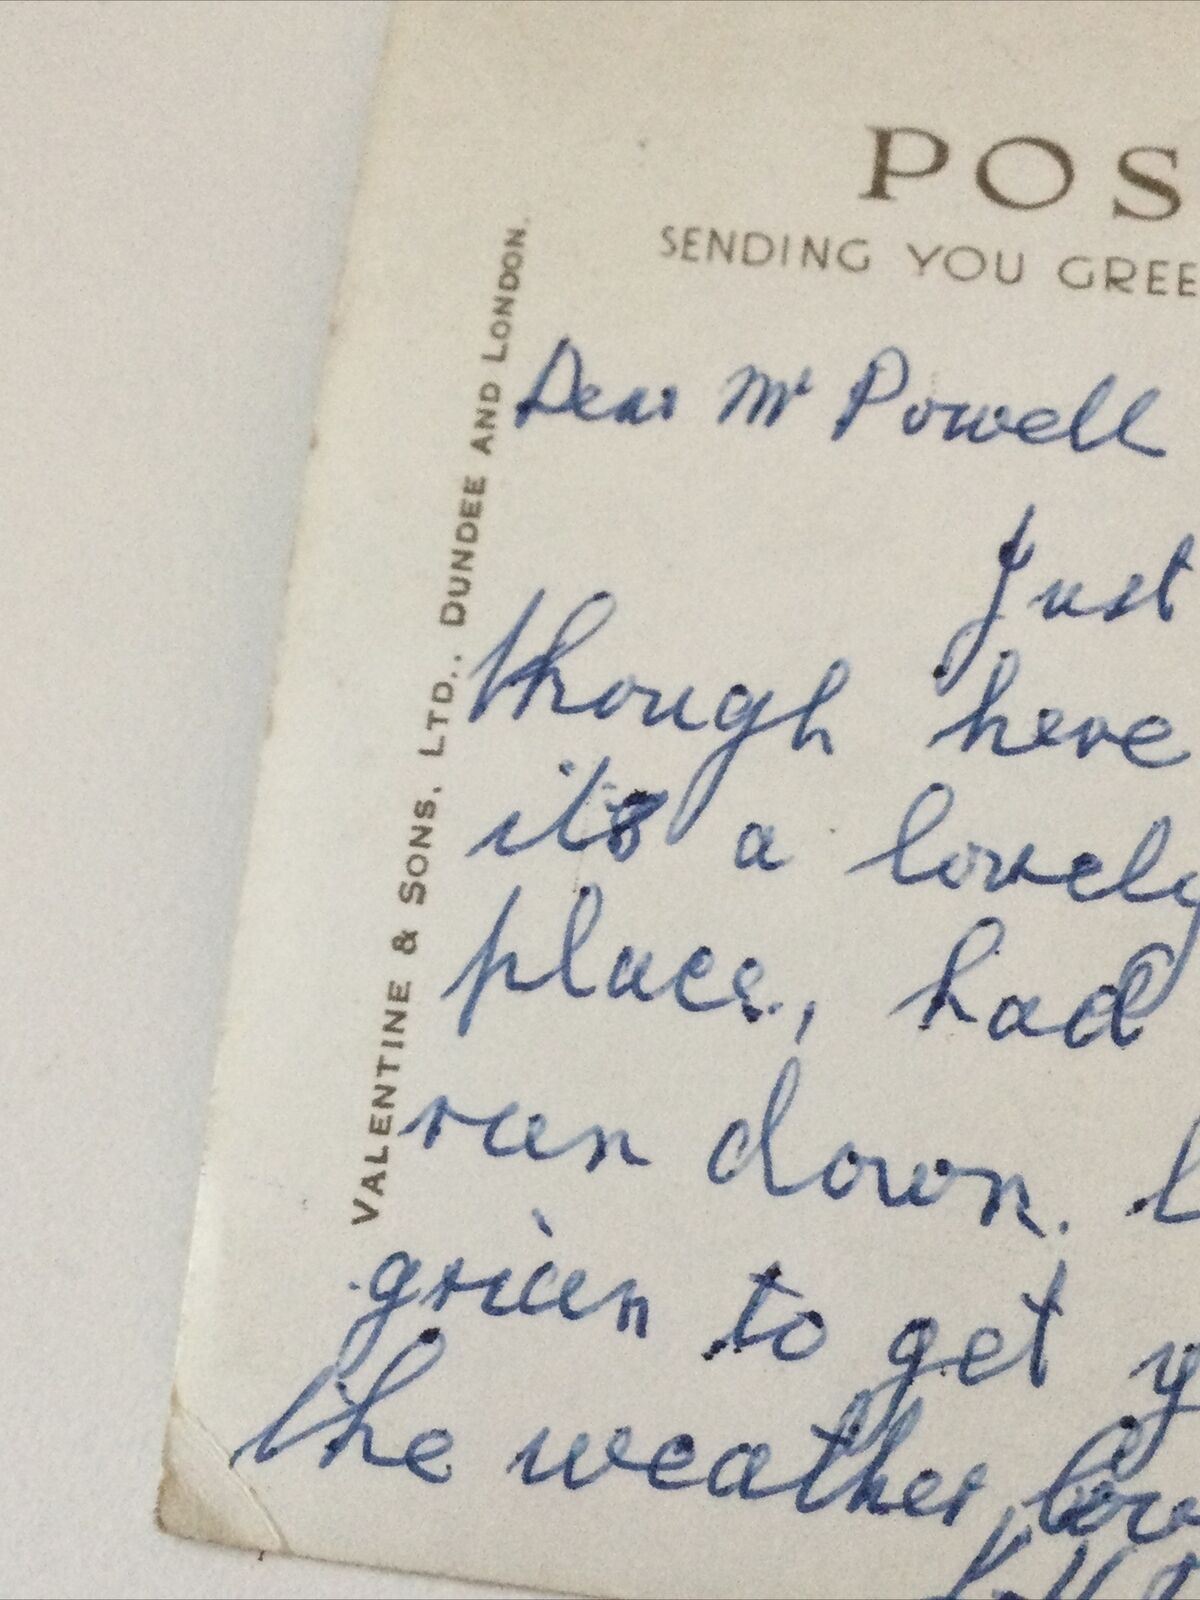 POS
SENDING YOU GREE
VALENTINE & SONS, LTD., DUNDEE AND LONDON.
Dear Mr Powell
Just
though here
its a lovely
place, had
run down.
to get y
the weather,